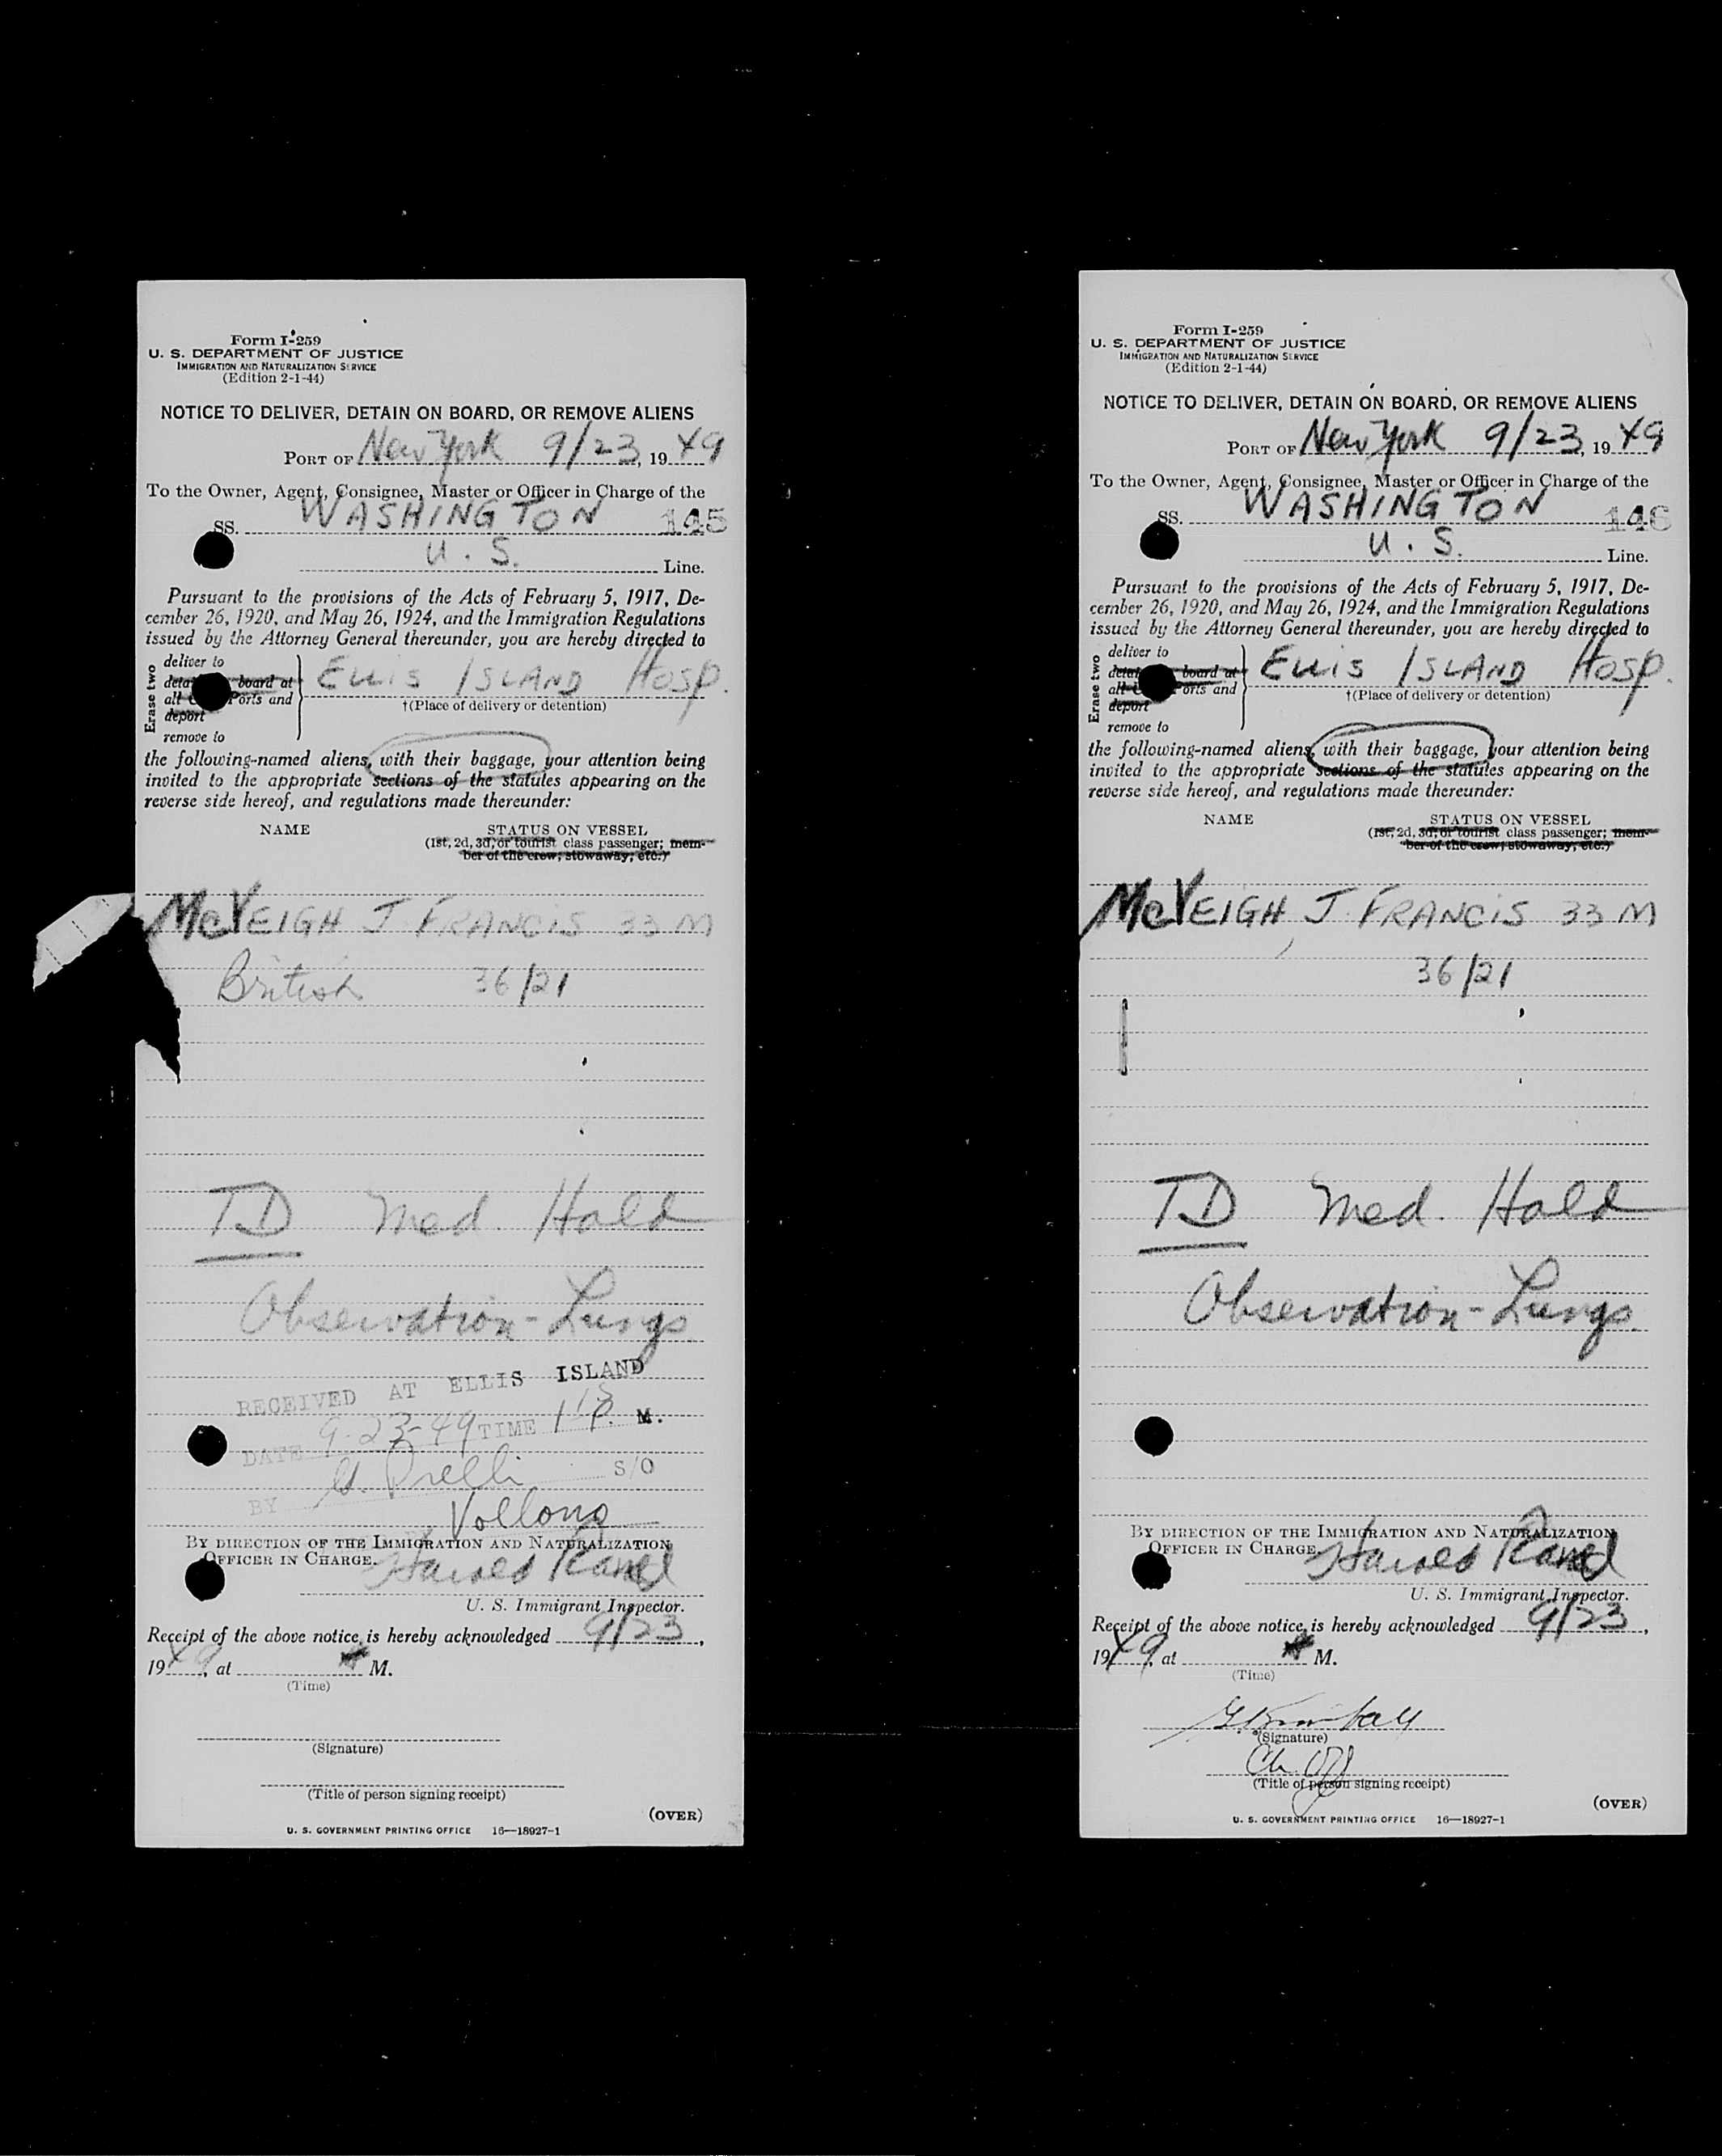 Form I-259
U. S. DEPARTMENT OF JUSTICE
IMMIGRATION AND NATURALIZATION SERVICE
(Edition 2-1-44)
NOTICE TO DELIVER, DETAIN ON BOARD, OR REMOVE ALIENS
PORT OF New York 9/23, 19 49
To the Owner, Agent, Consignee, Master or Officer in Charge of the
SS. WASHINGTON 145
U. S. Line.
Pursuant to the provisions of the Acts of February 5, 1917, De-
cember 26, 1920, and May 26, 1924, and the Immigration Regulations
issued by the Attorney General thereunder, you are hereby directed to
Erase two
deliver to
board at
all Ports and
deport
remove to
ELLIS ISLAND HOSP.
†(Place of delivery or detention)
the following-named aliens, with their baggage, your attention being
invited to the appropriate sections of the statutes appearing on the
reverse side hereof, and regulations made thereunder:
NAME STATUS ON VESSEL
(1st, 2d, 3d, or tourist class passenger; mem-
ber of the crew; stowaway; etc.)
McVEIGH J FRANCIS 33 M
British 36/21
TD Med. Hold
Observation - Lungs
RECEIVED AT ELLIS ISLAND
DATE 9-23-49 TIME 1 P. M.
BY S/O
BY DIRECTION OF THE IMMIGRATION AND NATURALIZATION
OFFICER IN CHARGE.
U. S. Immigrant Inspector.
Receipt of the above notice is hereby acknowledged 9/23,
1949, at M.
(Time)
(Signature)
(Title of person signing receipt)
(OVER)
U. S. GOVERNMENT PRINTING OFFICE 16—18927-1
Form I-259
U. S. DEPARTMENT OF JUSTICE
IMMIGRATION AND NATURALIZATION SERVICE
(Edition 2-1-44)
NOTICE TO DELIVER, DETAIN ON BOARD, OR REMOVE ALIENS
PORT OF New York 9/23, 19 49
To the Owner, Agent, Consignee, Master or Officer in Charge of the
SS. WASHINGTON 146
U. S. Line.
Pursuant to the provisions of the Acts of February 5, 1917, De-
cember 26, 1920, and May 26, 1924, and the Immigration Regulations
issued by the Attorney General thereunder, you are hereby directed to
Erase two
deliver to
board at
all Ports and
deport
remove to
ELLIS ISLAND HOSP.
†(Place of delivery or detention)
the following-named aliens, with their baggage, your attention being
invited to the appropriate sections of the statutes appearing on the
reverse side hereof, and regulations made thereunder:
NAME STATUS ON VESSEL
(1st, 2d, 3d, or tourist class passenger; mem-
ber of the crew; stowaway; etc.)
McVEIGH, J FRANCIS 33 M
36/21
TD Med. Hold
Observation - Lungs
BY DIRECTION OF THE IMMIGRATION AND NATURALIZATION
OFFICER IN CHARGE.
U. S. Immigrant Inspector.
Receipt of the above notice is hereby acknowledged 9/23,
1949, at M.
(Time)
(Signature)
Ch. Off
(Title of person signing receipt)
(OVER)
U. S. GOVERNMENT PRINTING OFFICE 16—18927-1